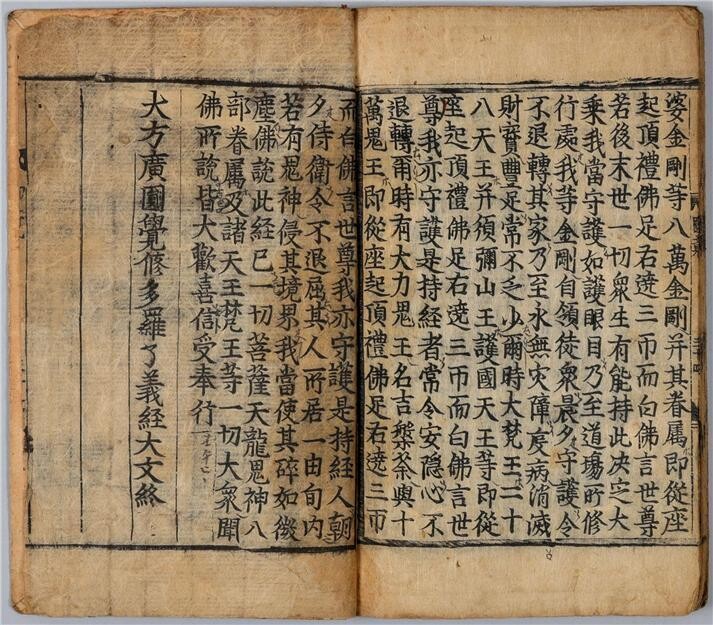 婆金剛等八萬金剛并其眷属即從座
起頂禮佛足右遶三帀而白佛言世尊
若後末世一切衆生有能持此决定大
乗我當守護如護眼目乃至道場所修
行處我等金剛自領徒衆晨夕守護令
不退轉其家乃至永無灾障疫病消滅
財寳豐足常不乏少爾時大梵王二十
八天王并須彌山王護國天王等即從
座起頂禮佛足右遶三帀而白佛言世
尊我亦守護是持経者常令安隱心不
退轉爾時有大力鬼王名吉槃荼與十
萬鬼王即從座起頂禮佛足右遶三帀
而白佛言世尊我亦守護是持経人朝
夕侍衛令不退屈其人所居一由旬内
若有鬼神侵其境界我當使其碎如微
塵佛說此経已一切菩薩天龍鬼神八
部眷属及諸天王梵王等一切大衆聞
佛所說皆大歡喜信受奉行
大方廣圎覺修多羅了義経大文終